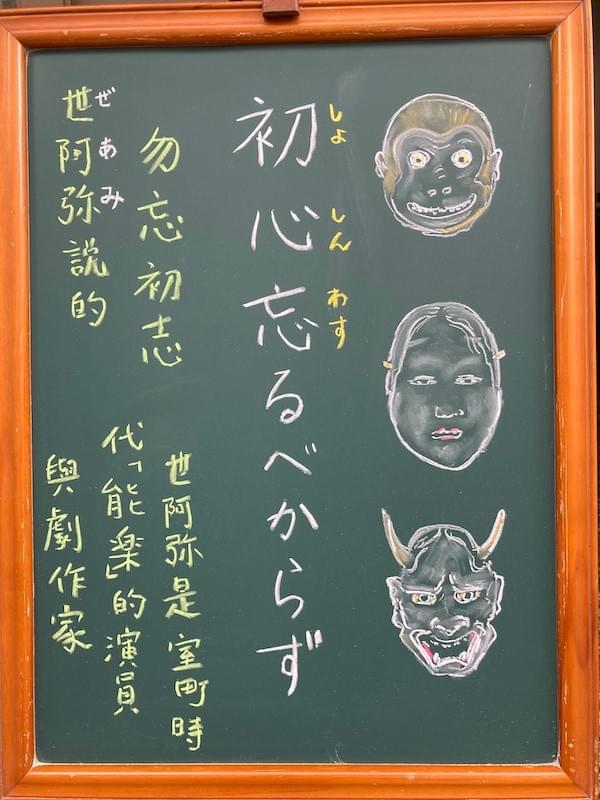 初心忘るべからず
しょしんわす
勿忘初志
世阿弥説的
ぜあみ
世阿弥是室町時
代「能楽」的演員
與劇作家